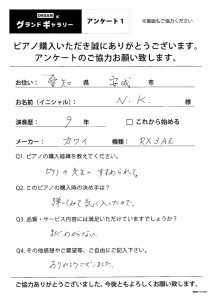 グランドギャラリー アンケート1 ※裏面もご協力ください
ピアノ購入いただき誠にありがとうございます。
アンケートのご協力お願い致します。
お住い: 愛知 県 安城 市
お名前(イニシャル): N.K. 様
演奏歴: 9 年 □これから始める
メーカー: カワイ 機種: RX3AE
Q1. ピアノの購入経緯を教えてください。
ピアノの先生にすすめられて。
Q2. このピアノの購入時の決め手は?
弾いてみて気に入ったので。
Q3. 品質・サービス内容には満足いただけていますでしょうか?
まだわからない
Q4. その他感想やご要望等、ご自由にご記入下さい。
ありがとうございました。
ご協力ありがとうございました。今後ともよろしくお願い致します。